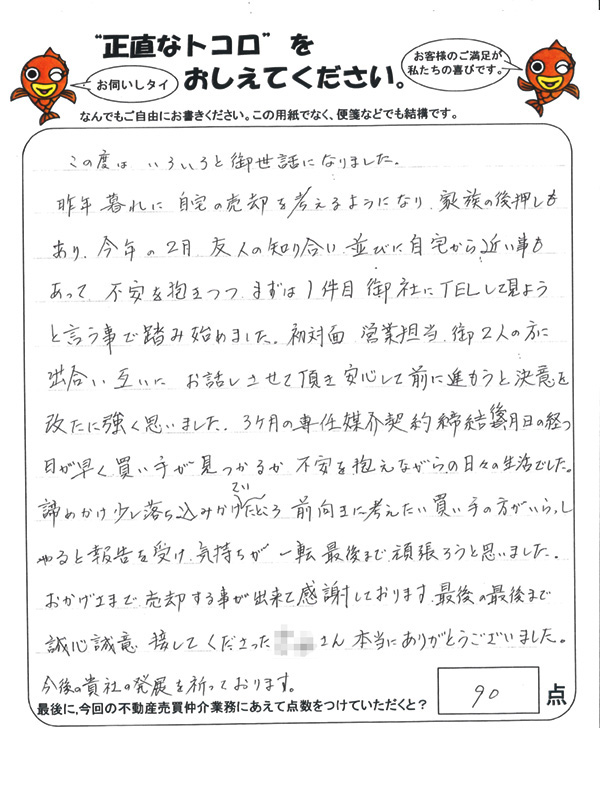 "正直なトコロ"を
おしえてください。
お伺いしタイ
お客様のご満足が
私たちの喜びです。
なんでもご自由にお書きください。この用紙でなく、便箋などでも結構です。
この度は いろいろと御世話になりました。
昨年暮れに 自宅の売却を考えるようになり、家族の後押しも
あり、今年の2月 友人の知り合い 並びに自宅から近い事も
あって、不安を抱きつつ まずは1件目 御社にTELして見よう
と言う事で踏み始めました。初対面 営業担当、御2人の方に
出合い 互いに お話しさせて頂き 安心して前に進もうと決意を
改たに強く思いました。3ケ月の専任媒介契約締結後月日の経つ
日が早く買い手が見つかるか 不安を抱えながらの日々の生活でした。
諦めかけ少し落ち込みかけていたところ 前向きに考えたい買い手の方がいらっし
ゃると報告を受け、気持ちが 一転 最後まで 頑張ろうと思いました。
おかげさまで 売却する事が出来て感謝しております。最後の最後まで
誠心誠意 接してくださった さん 本当にありがとうございました。
今後の貴社の発展を祈っております。
最後に、今回の不動産売買仲介業務にあえて点数をつけていただくと?
90 点